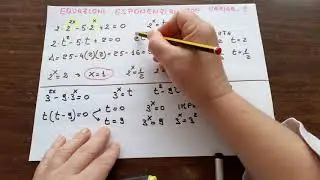 EQUAZIONI ESPONENZIALI CON VARIABILE
2·2^{2x} - 5·2^{x} + 2 = 0
2^{x} = t
2·t² - 5·t + 2 = 0
t = 2
Δ = 25 - 4(2)(2) = 25 - 16 =
t = 1/2
2^{x} = 2 → x = 1
2^{x} = 1/2
3^{2x} - 9·3^{x} = 0
3^{x} = t
t² - 9t
t(t-9) = 0
t = 0
3^{x} = 0
t = 9
3^{x} = 9
3^{x} = 3²